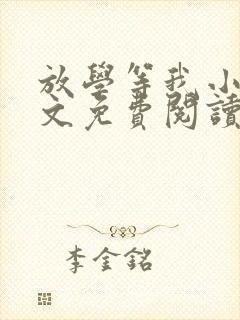 放學等我小
文免費閱讀
李金銘